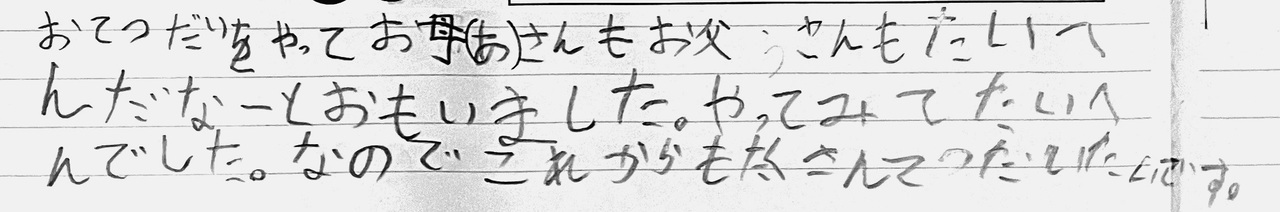 おてつだいをやってお母(あ)さんもお父さんもたいへ
んだなーとおもいました。やってみてたいへ
んでした。なのでこれからもたくさんてつだいたいです。